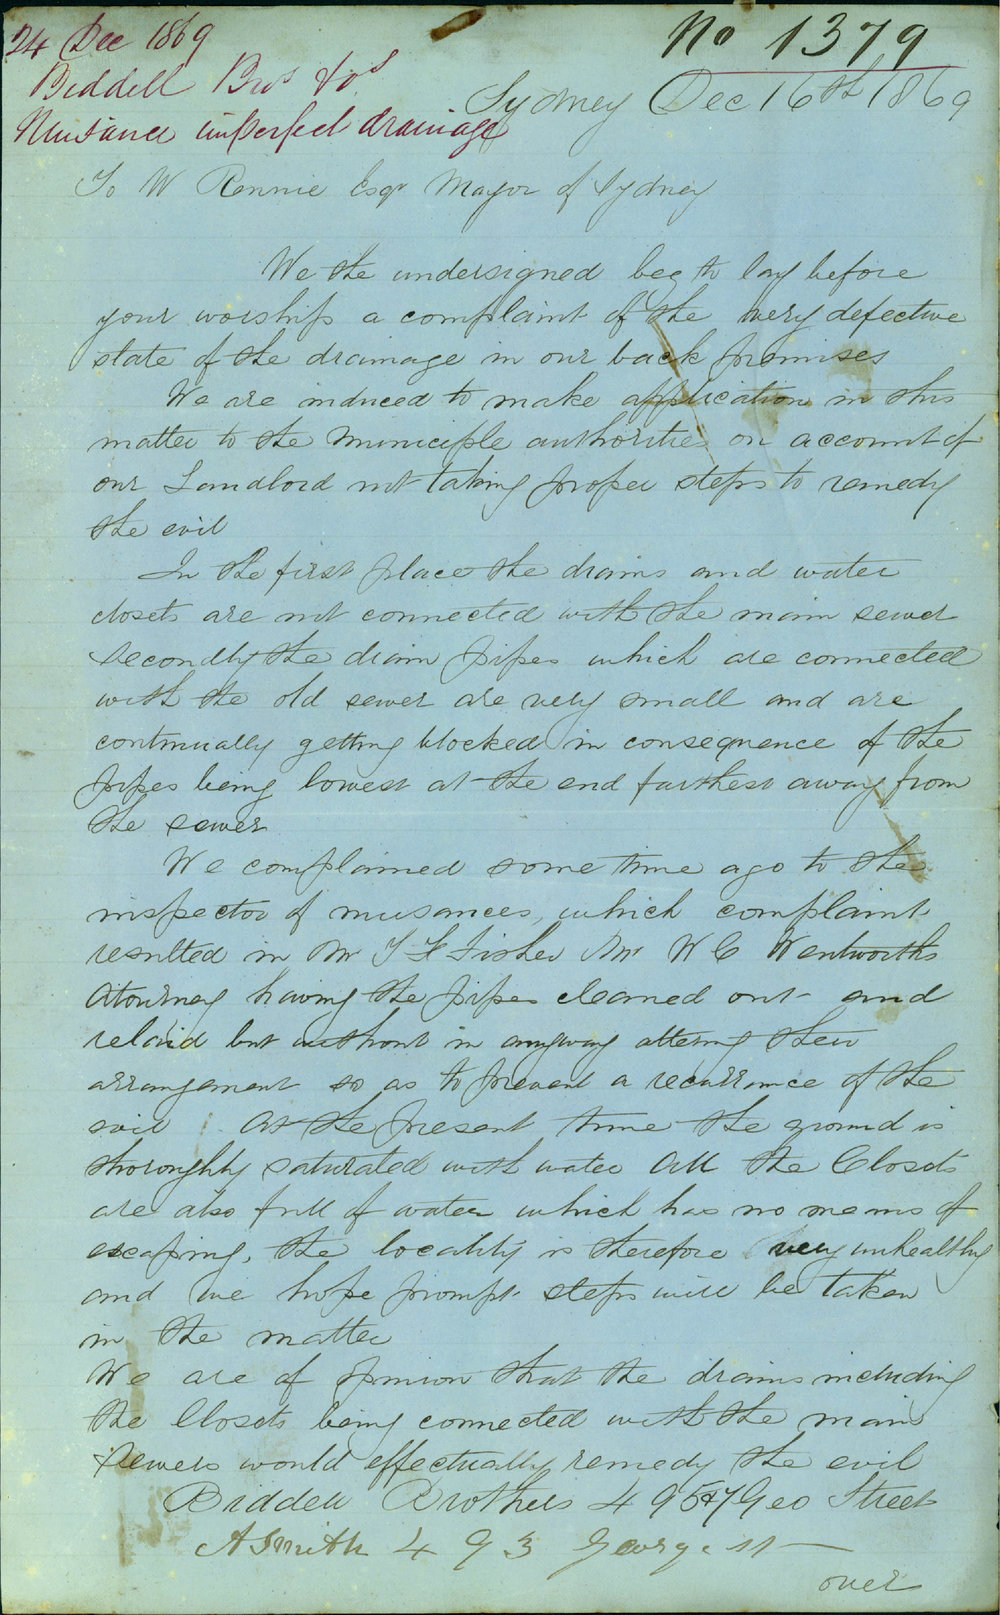 24 Dec 1869
No 1379
Biddell Bros & os
Sydney Dec 16th 1869
Nuisance imperfect drainage
To W Rennie Esqr Mayor of Sydney
We the undersigned beg to lay before
your worship a complaint of the very defective
state of the drainage in our back premises
We are induced to make application in this
matter to the Municiple authorities on account of
our Landlord not taking proper steps to remedy
the evil
In the first place the drains and water
closets are not connected with the main sewer
secondly the drain pipes which are connected
with the old sewer are very small and are
continually getting blocked in consequence of the
pipes being lowest at the end farthest away from
the sewer
We complained some time ago to the
inspector of nusances, which complaint
resulted in Mr Fisher Mr W C Wentworths
Atourney having the pipes cleaned out and
relaid but without in anyway altering their
arrangement so as to prevent a recurrance of the
evil At the present time the ground is
thoroughly saturated with water All the Closets
are also full of water which has no means of
escaping, the locality is therefore very unhealthy
and we hope prompt steps will be taken
in the matter
We are of opinion that the drains including
the Closets being connected with the main
sewers would effectually remedy the evil
Biddell Brothers 495&7 Geo Street
A Smith 493 George st
over